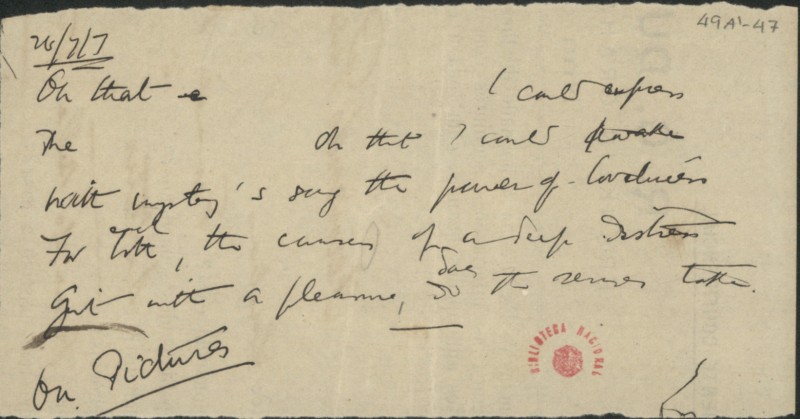 49A1-47
26/7/7
Oh that I could express
The oh that I could
with mystery's say the power of loveliness
For both, the causes of a deep distress
Yet with a pleasure, does do the senses take.
On Pictures
BIBLIOTECA NACIONAL